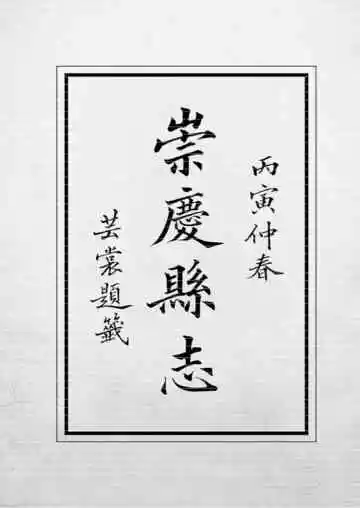 丙寅仲春
崇慶縣志
芸裳題籤